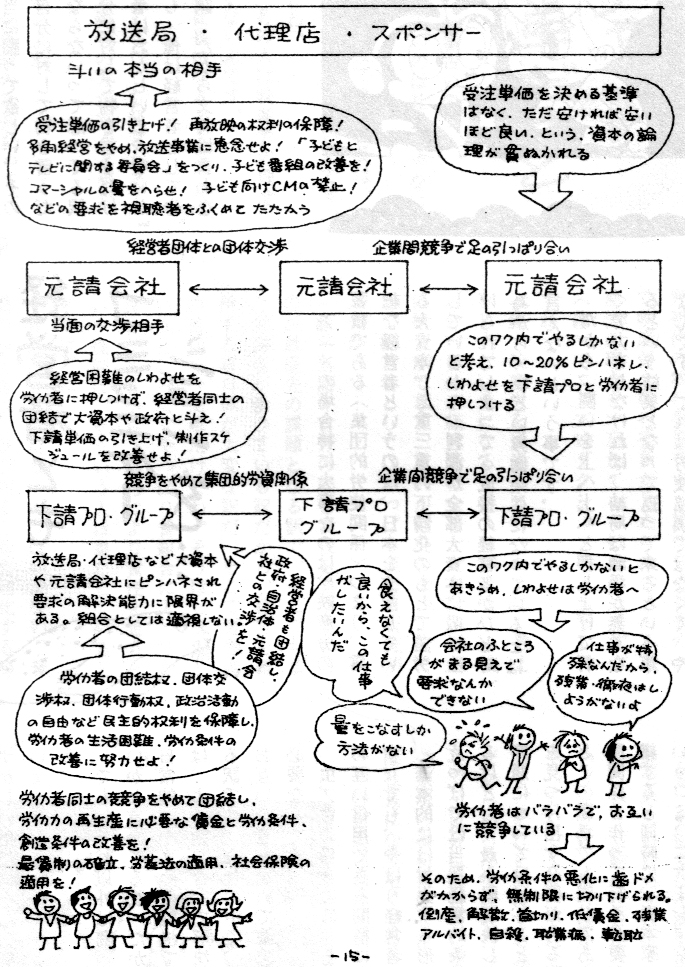 放送局・代理店・スポンサー
斗いの本当の相手
受注単価の引き上げ！ 再放映の权利の保障！
多角経営をやめ、放送事業に専念せよ！ 「子どもと
テレビに関する委員会」をつくり、子ども番組の改善を！
コマーシャルの量をへらせ！ 子ども向けCMの禁止！
などの要求を視聴者をふくめて たたかう
受注単価を決める基準
はなく、ただ安ければ安い
ほど良い、という、資本の論
理が貫ぬかれる
経営者団体との団体交渉
企業間競争で足の引っぱり合い
元請会社
元請会社
元請会社
当面の交渉相手
経営困難のしわよせを
労仂者に押しつけず、経営者同士の
団結で大資本や政府と斗え！
下請単価の引き上げ、制作スケ
ジュールを改善せよ！
このワク内でやるしかない
と考え、10～20％ピンハネし、
しわよせを下請プロと労仂者に
押しつける
競争をやめて集団的労資関係
企業間競争で足の引っぱり合い
下請プロ・グループ
下請プロ
グループ
下請プロ・グループ
放送局・代理店など大資本
や元請会社にピンハネされ
要求の解決能力に限界が
ある。組合としては適視しない。
経営者も団結し、
政府・自治体・元請会
社との交渉を！
食えなくても
良いから、この仕事
がしたいんだ
このワク内でやるしかないと
あきらめ、しわよせは労仂者へ
労仂者の団結权、団体交
渉权、団体行動权、政治活動
の自由など民主的权利を保障し、
労仂者の生活困難、労仂条件の
改善に努力せよ！
量をこなすしか
方法がない
会社のふところ
がまる見えで
要求なんか
できない
仕事が特
殊なんだから、
残業・徹夜はし
ようがないよ
労仂者はバラバラで、お互い
に競争している
労仂者同士の競争をやめて団結し、
労仂力の再生産に必要な賃金と労仂条件、
創造条件の改善を！
最賃制の確立、労基法の適用、社会保険の
適用を！
そのため、労仂条件の悪化に歯ドメ
がかからず、無制限に切り下げられる。
倒産、解散、首切り、低賃金、残業
アルバイト、自殺、職業病、転職
-15-